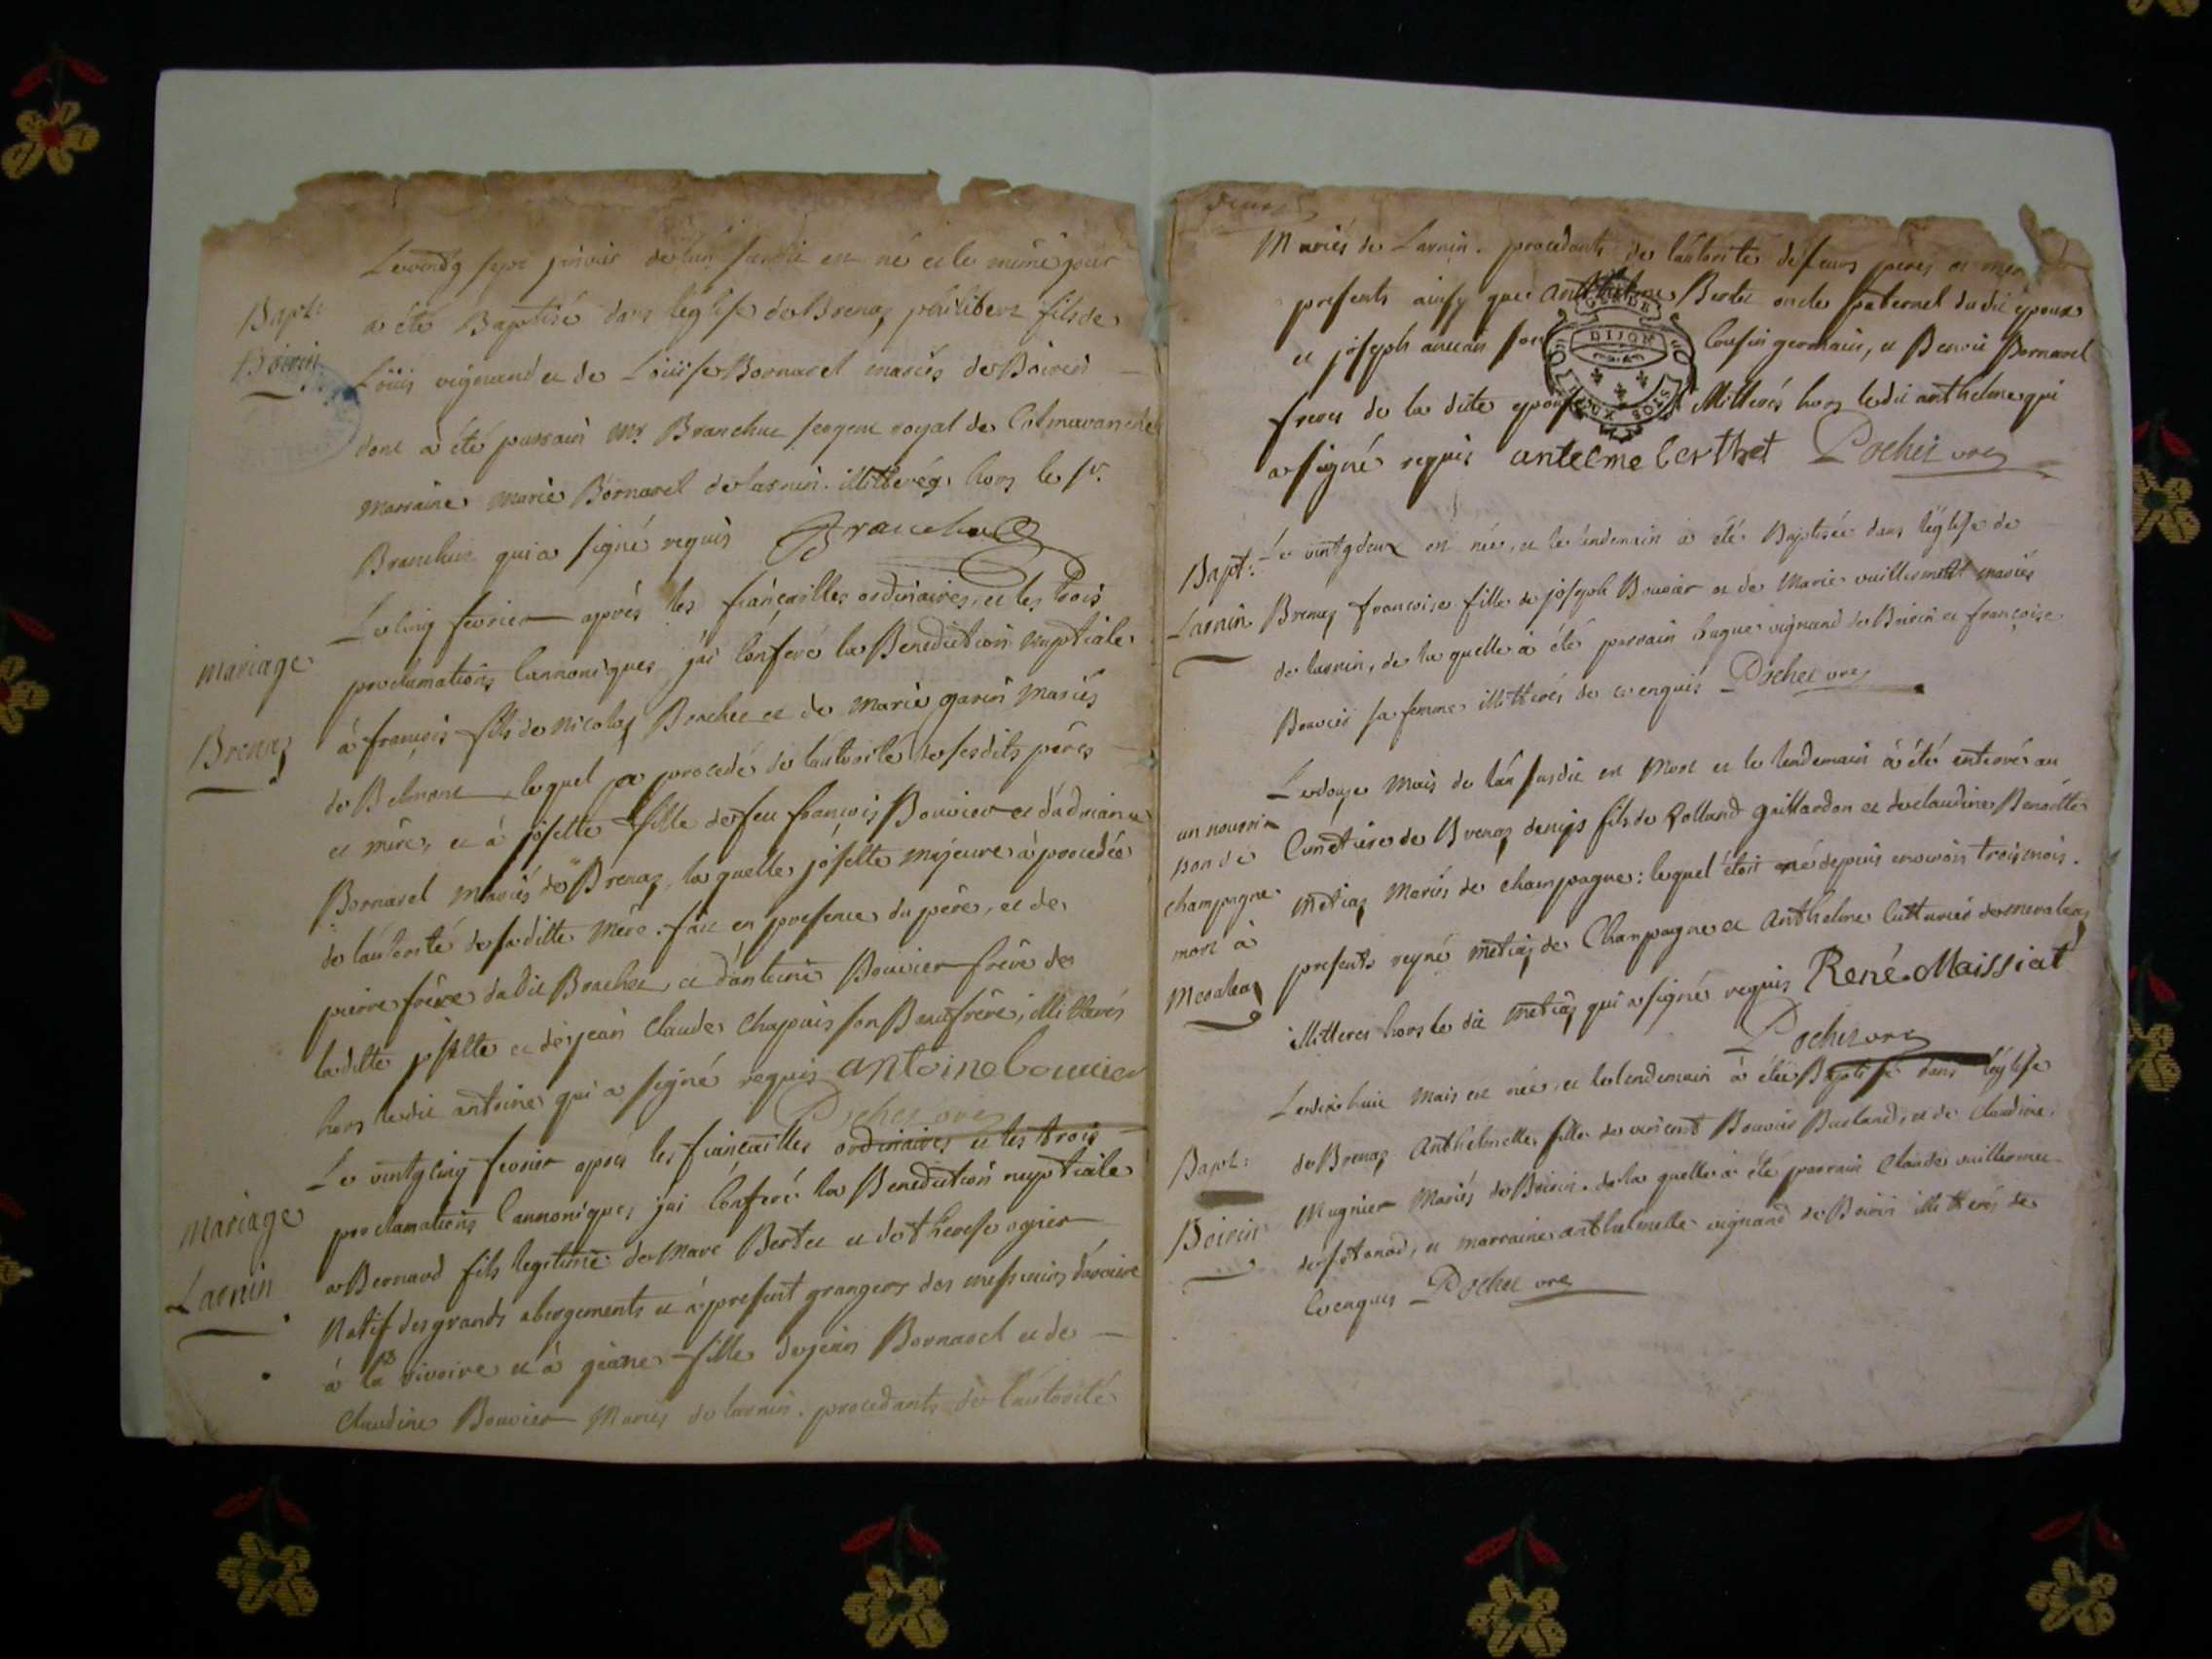 Bapt:
Boirin
Le vendg sept janvier de l'an susdit est né et le même jour
a été Baptisé dans l'églife de Brenaz philibert fils de
Loüis vignand et de Loüise Bornarel mariés de Boirin
dont a été parrain Mr Branchue sergent royal de
marraine marie Bornarel de larnin. illitterés hors le sr.
Branchue qui a signé requis
mariage
Brenaz
Le cinq fevrier après les fiançailles ordinaires et les trois
proclamations cannoniques, j'ai conferé la Benediction nuptiale
à françois fils de nicolas et de marie garin mariés
de Belmont, lequel a procedé de l'autorité de sesdits pères
et mère, et à josette fille de feu françois Bouvier et d'adrianne
Bornarel mariés de Brenaz, la quelle josette majeure à procedée
de l'autorité de sa ditte mère. fait en presence du père, et de
pierre frère dudit et d'antoine Bouvier frère de
laditte josette et de jean claude chapuis son Beaufrère, illitterés
hors ledit antoine qui a signé requis antoine bouvier
Pochet vre
mariage
Larnin
Le vintg cinq fevrier après les fiançailles ordinaires et les trois
proclamations cannoniques, j'ai conferé la Benediction nuptiale
a Bernard fils legitime de Marc Bertet et de therese ognier
natif des grands abergements et à present grangers des messieurs
à la rivoire et à jeane fille de jean Bornarel et de
claudine Bouvier Mariés de larnin. procedants de l'autorité
Mariés de Larnin. procedants de l'autorité de leurs pères et mer
presents ainsy que anthelme Bertet oncle paternel dudit epoux
et joseph son cousin germain, et Benoit Bornarel
DIJON
freres de la dite epouse illitterés hors ledit anthelme qui
a signé requis antelme berthet Pochet vre
Bapt:
Larnin
Le vintg deux est née, et le lendemain a été Baptisée dans l'églife de
Brenaz françoise fille de joseph Bouvier et de Marie vuillermet mariés
de larnin, de la quelle à été parrain hugue vignand de Boirin et françoise
Bouvier sa femme illitterés de ce enquis Pochet vre
un nourri
son de
champagne
mort à
Meraleaz
Le douze mars de l'an susdit est Mort et le lendemain à été enterré au
cimetiere de Brenaz denys fils de Rolland gaillardon et de claudine Benoitte
metiaz Mariés de champagne: lequel étoit né depuis environ trois mois.
presents reyné metiaz de Champagne et Anthelme cutturier de meraleaz
illitteres hors le dit metiaz qui a signé requis René Maissiat
Pochet vre
Bapt:
Boirin
Le dix huit mars est née, et le lendemain à été Baptisée dans l'églife
de Brenaz Anthelmette fille de vincent Bouvier Burland, et de claudine
Mugnier Mariés de Boirin. de la quelle à été parrain claude vuillermet
de sotonod, et marraine anthelmette vignand de Boirin illitterés de
ce enquis Pochet vre